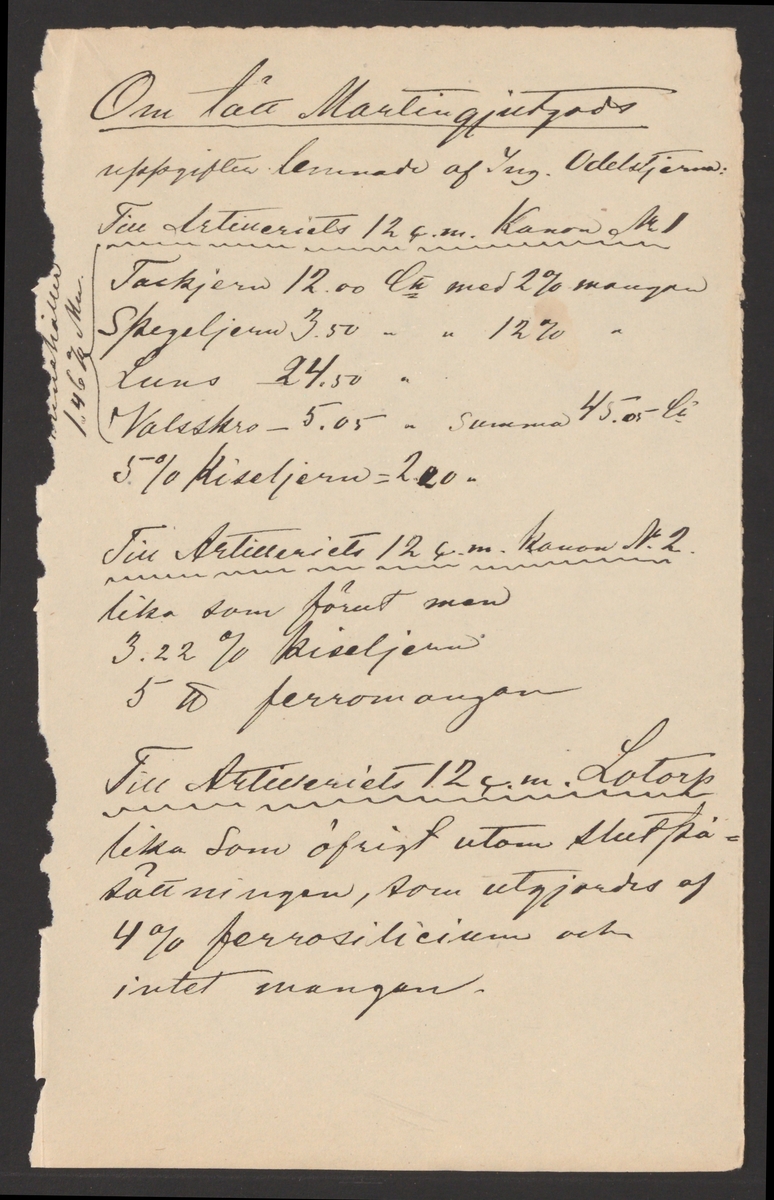 Om tätt Martingjutgods
uppgifter lemnade af Ing. Odelstjerna:
Till Artilleriets 12 c.m. Kanon № 1
Tackjern 12.00 Ctr med 2% mangan
Spegeljern 3.50 " " 12% "
Luns 24.50 "
Valsskro – 5.05 " Summa 45.05 Ctr
innehåller
1.46 % Mn.
5% Kiseljern = 2.20 "
Till Artilleriets 12 c.m. Kanon № 2.
lika som förut men
3.22 % kiseljern
5 ℔ ferromangan
Till Artilleriets 12 c.m. Lotorp
lika som öfrigt utom slutpå=
sättningen, som utgjordes af
4% ferrosilicium och
intet mangan.